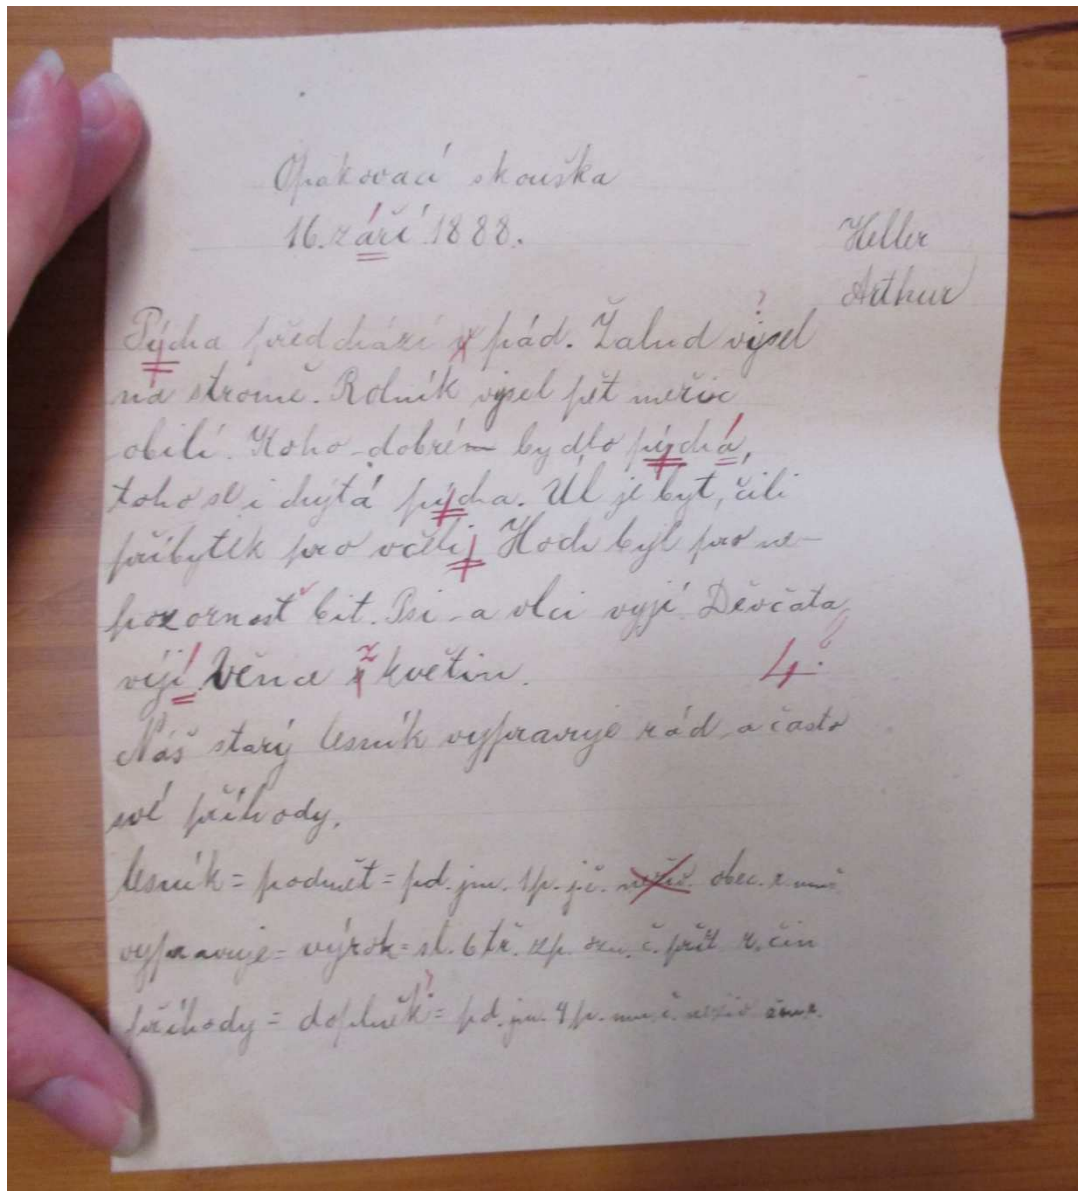 Opakovací skouška
16. září 1888.
Heller
Arthur
Pýcha předchází pád. Žalud vysel
na stromě. Rolník vysel pět měřic
obilí. Koho dobrém bydlo pýchá,
toho se i chytá pýcha. Úl je byt, čili
příbytek pro včely Hoch byl pro ne-
pozornost bit. Psi a vlci vyjí Děvčata
vijí. Věnce z květin.
4
Náš starý lesník vypravuje rád a často
své příhody.
lesník = podmět = pd. jm. 1 p. j. č. obec. r. muž
vypravuje = výrok = sl. 6 tř. zp. ozn. č. přít. r. čin
příhody = doplněk = pd. jm. 4 p. mn. č. neživ